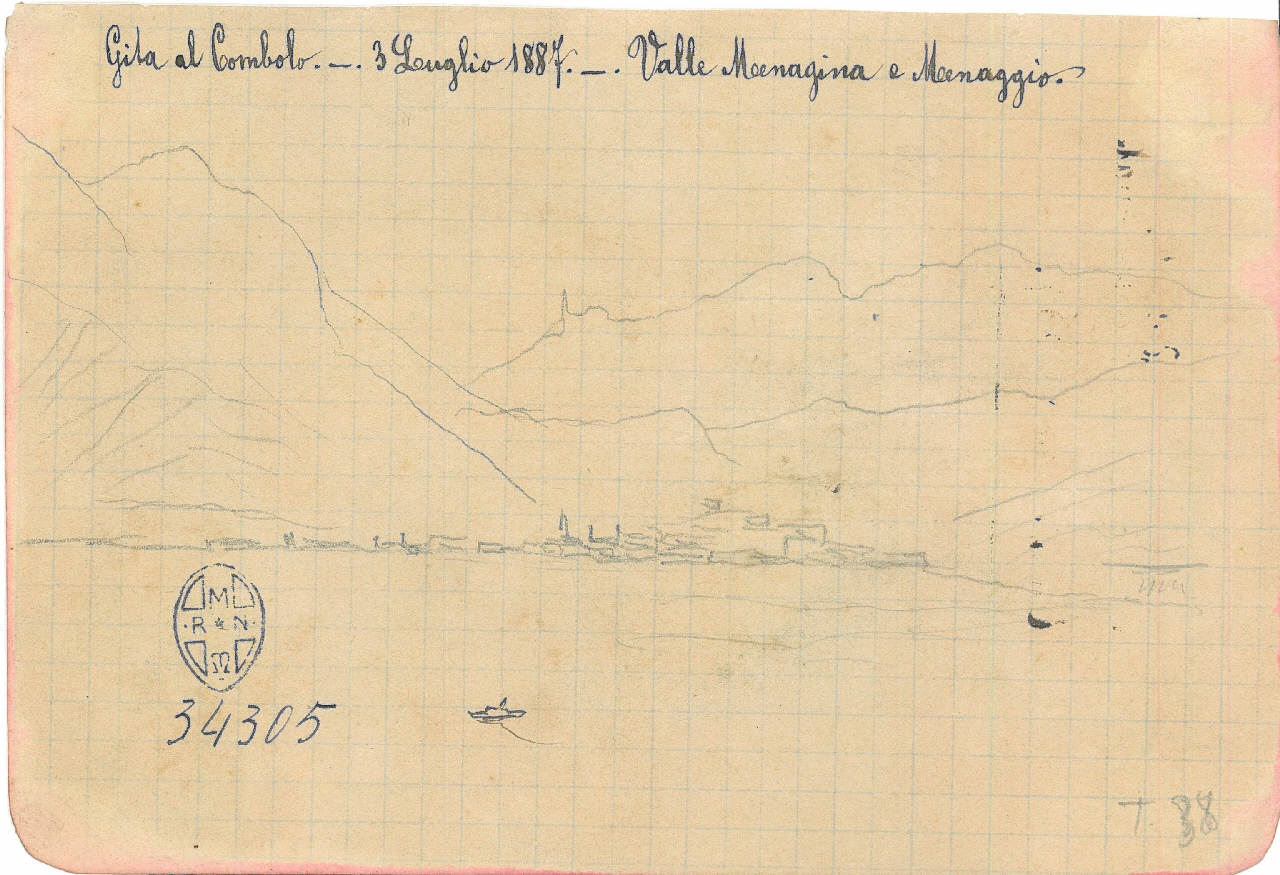 Gita al Combolo. — . 3 Luglio 1887. — . Valle Menagina e Menaggio.
M
R * N
M
34305
T. 38